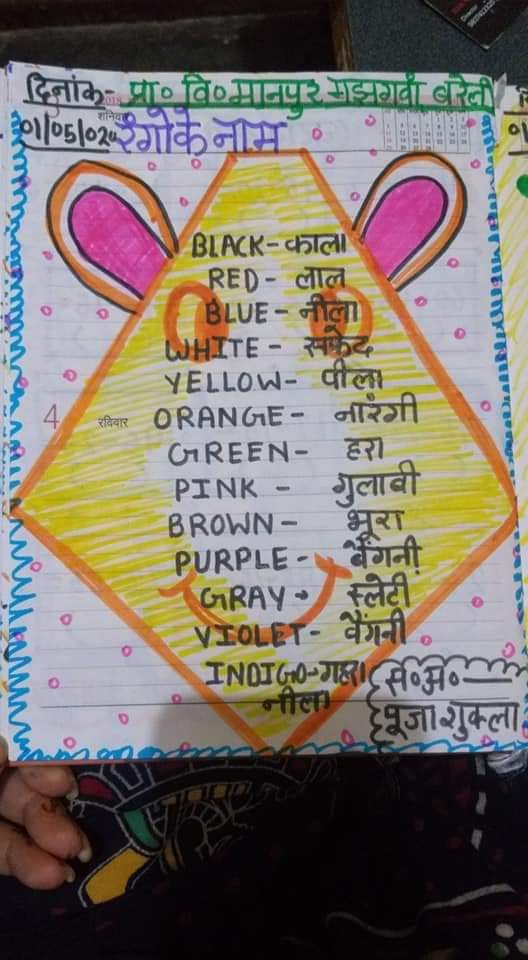 दिनांक- प्रा० वि० मानपुर मझगवां बरेली
01/05/024 रंगो के नाम
शनिवार
BLACK- काला
RED- लाल
BLUE- नीला
WHITE- सफेद
YELLOW- पीला
4 रविवार ORANGE- नारंगी
GREEN- हरा
PINK - गुलाबी
BROWN- भूरा
PURPLE- बैंगनी
GRAY- स्लेटी
VIOLET- बैंगनी
INDIGO-गहरा
नीला
स०अ०—
पूजा शुक्ला